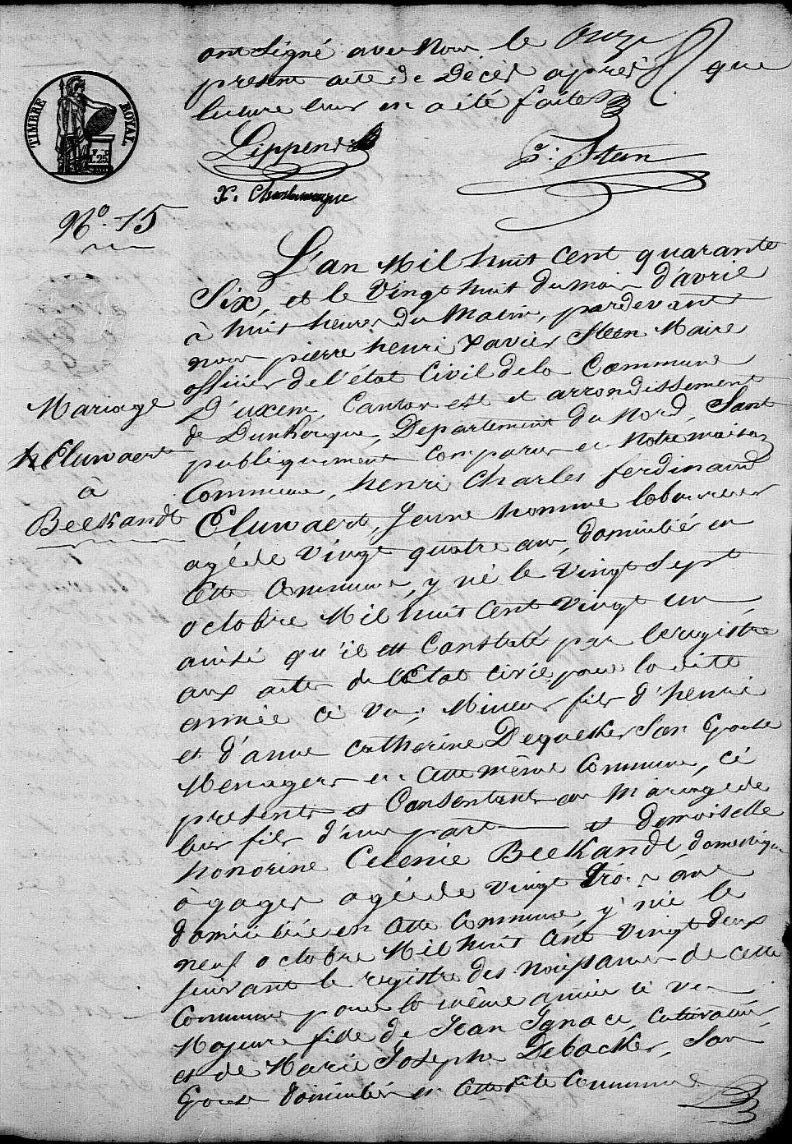 ont signé avec Nous le
present acte de Décès après que
lecture leur en a été faite
TIMBRE ROYAL
Lippens
P. Steen
N.º 15
L'an Mil huit Cent quarante
Six, et le Vingt huit du mois d'avril
à huit heures du Matin, pardevant
nous pierre henri Xavier Steen Maire
officier de l'état Civil de la Commune
D'uxem, Canton est et arrondissement
de Dunkerque, Departement du Nord, Sont
publiquement Comparus en Notre maison
Commune, henri Charles ferdinand
Mariage
Cluwaert
à
Beekandt
Cluwaert, Jeune homme laboureur
agé de Vingt quatre ans, domicilié en
Cette Commune, y né le Vingt Sept
octobre Mil huit Cent Vingt un
ainsi qu'il est Constaté par le registre
aux actes de l'Etat civil pour la dite
année ci Vu, Mineur fils d'henri
et d'anne Catherine Dequeker Son Epouse
Menagers en Cette même Commune, ci
presents et Consentant au Mariage de
leur fils d'une part et demoiselle
honorine Celenie Beekandt domestique
à gages agée de Vingt trois ans
domiciliée en Cette Commune, y née le
neuf octobre Mil huit Cent Vingt deux
suivant le registre des Naissances de Cette
Commune pour la même année ci Vu
Majeure fille de Jean Ignace, Cultivateur
et de Marie Josephe Debacker, Son
Epouse domiciliés en Cette dite Commune